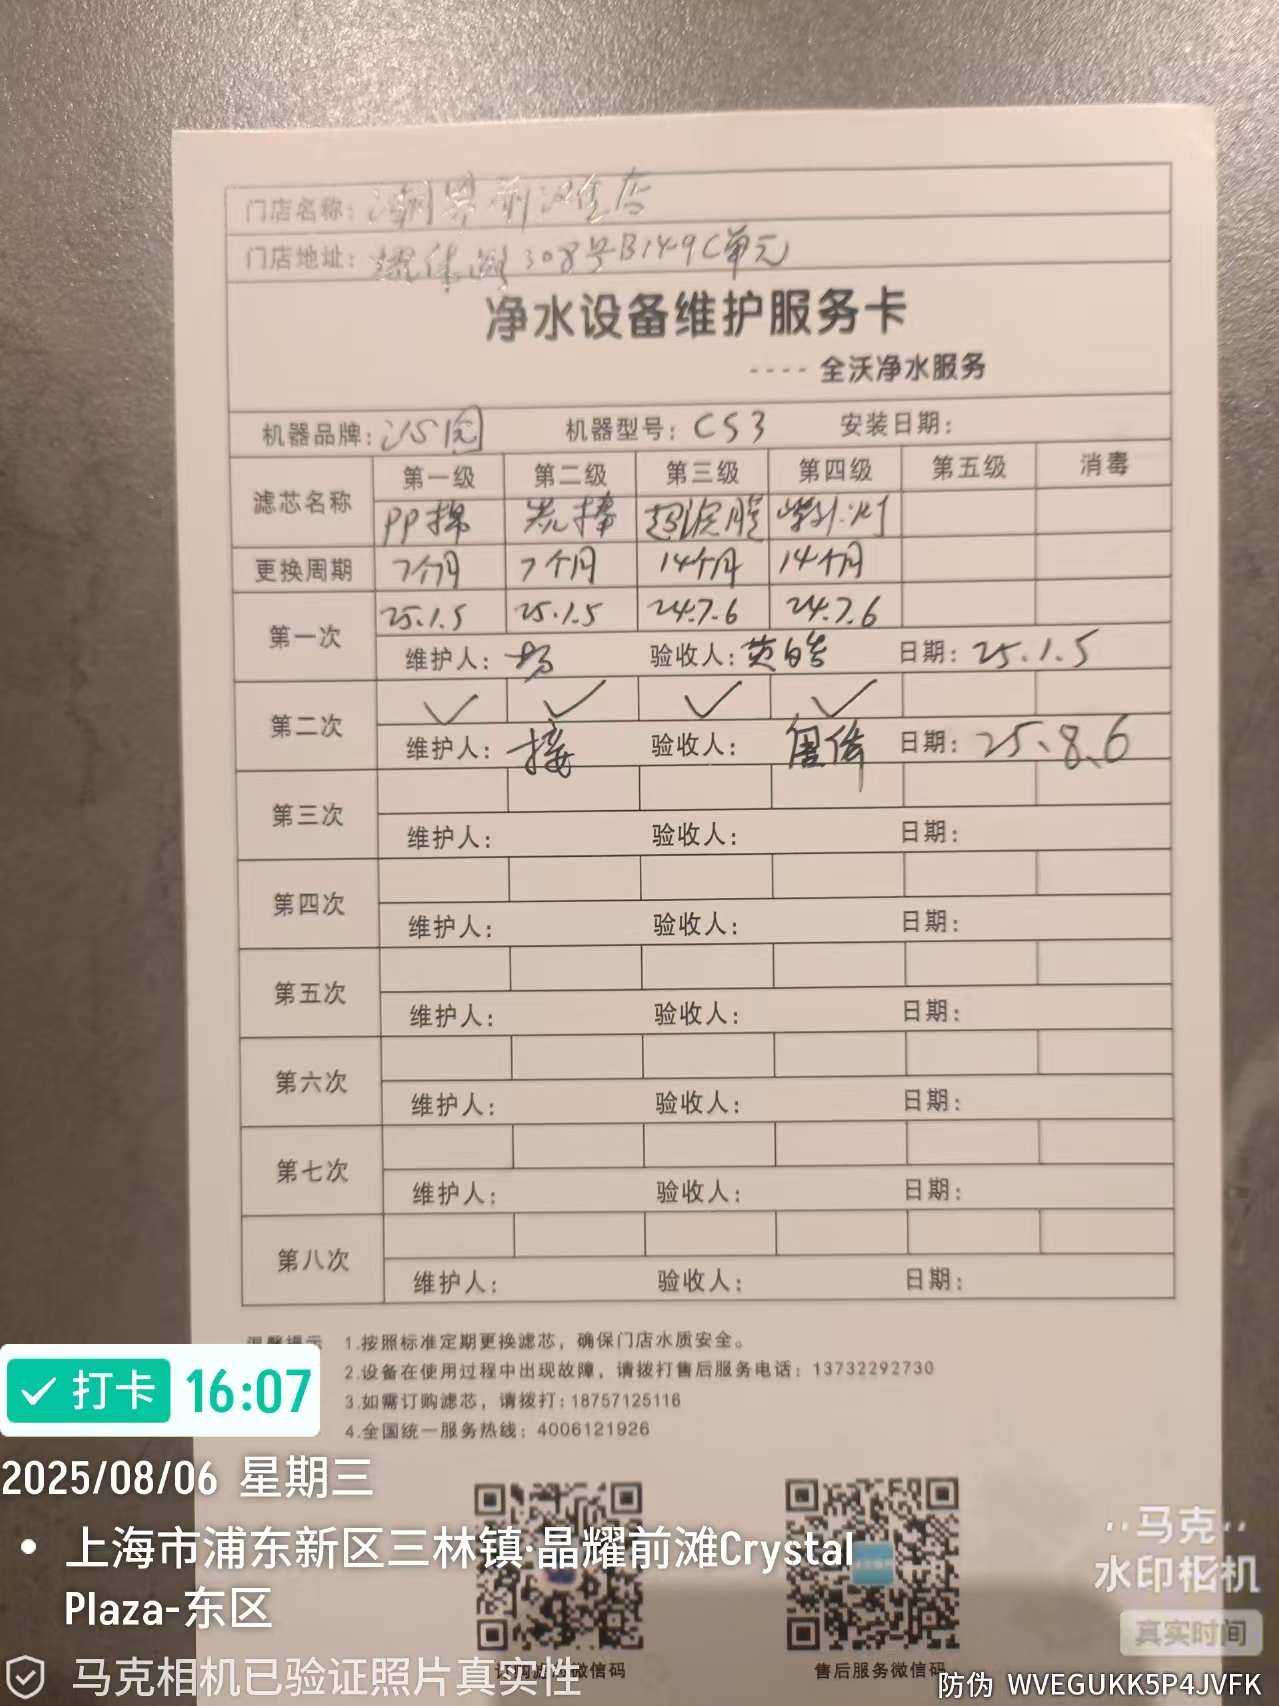 门店名称：
门店地址：耀体路308号B149C单元
净水设备维护服务卡
----全沃净水服务
机器品牌： 机器型号：CS3 安装日期：
滤芯名称 第一级 第二级 第三级 第四级 第五级 消毒
PP棉 炭棒 超滤膜 紫外灯
更换周期 7个月 7个月 14个月 14个月
第一次 25.1.5 25.1.5 24.7.6 24.7.6
维护人：杨 验收人： 日期：25.1.5
第二次 ✓ ✓ ✓ ✓
维护人： 验收人： 日期：25、8、6
第三次
维护人： 验收人： 日期：
第四次
维护人： 验收人： 日期：
第五次
维护人： 验收人： 日期：
第六次
维护人： 验收人： 日期：
第七次
维护人： 验收人： 日期：
第八次
维护人： 验收人： 日期：
1.按照标准定期更换滤芯，确保门店水质安全。
2.设备在使用过程中出现故障，请拨打售后服务电话：13732292730
3.如需订购滤芯，请拨打：18757125116
4.全国统一服务热线：4006121926
✓打卡 16:07
2025/08/06 星期三
上海市浦东新区三林镇·晶耀前滩Crystal
Plaza-东区
马克相机已验证照片真实性
订购滤芯微信码
售后服务微信码
马克
水印相机
真实时间
防伪 WVEGUKK5P4JVFK